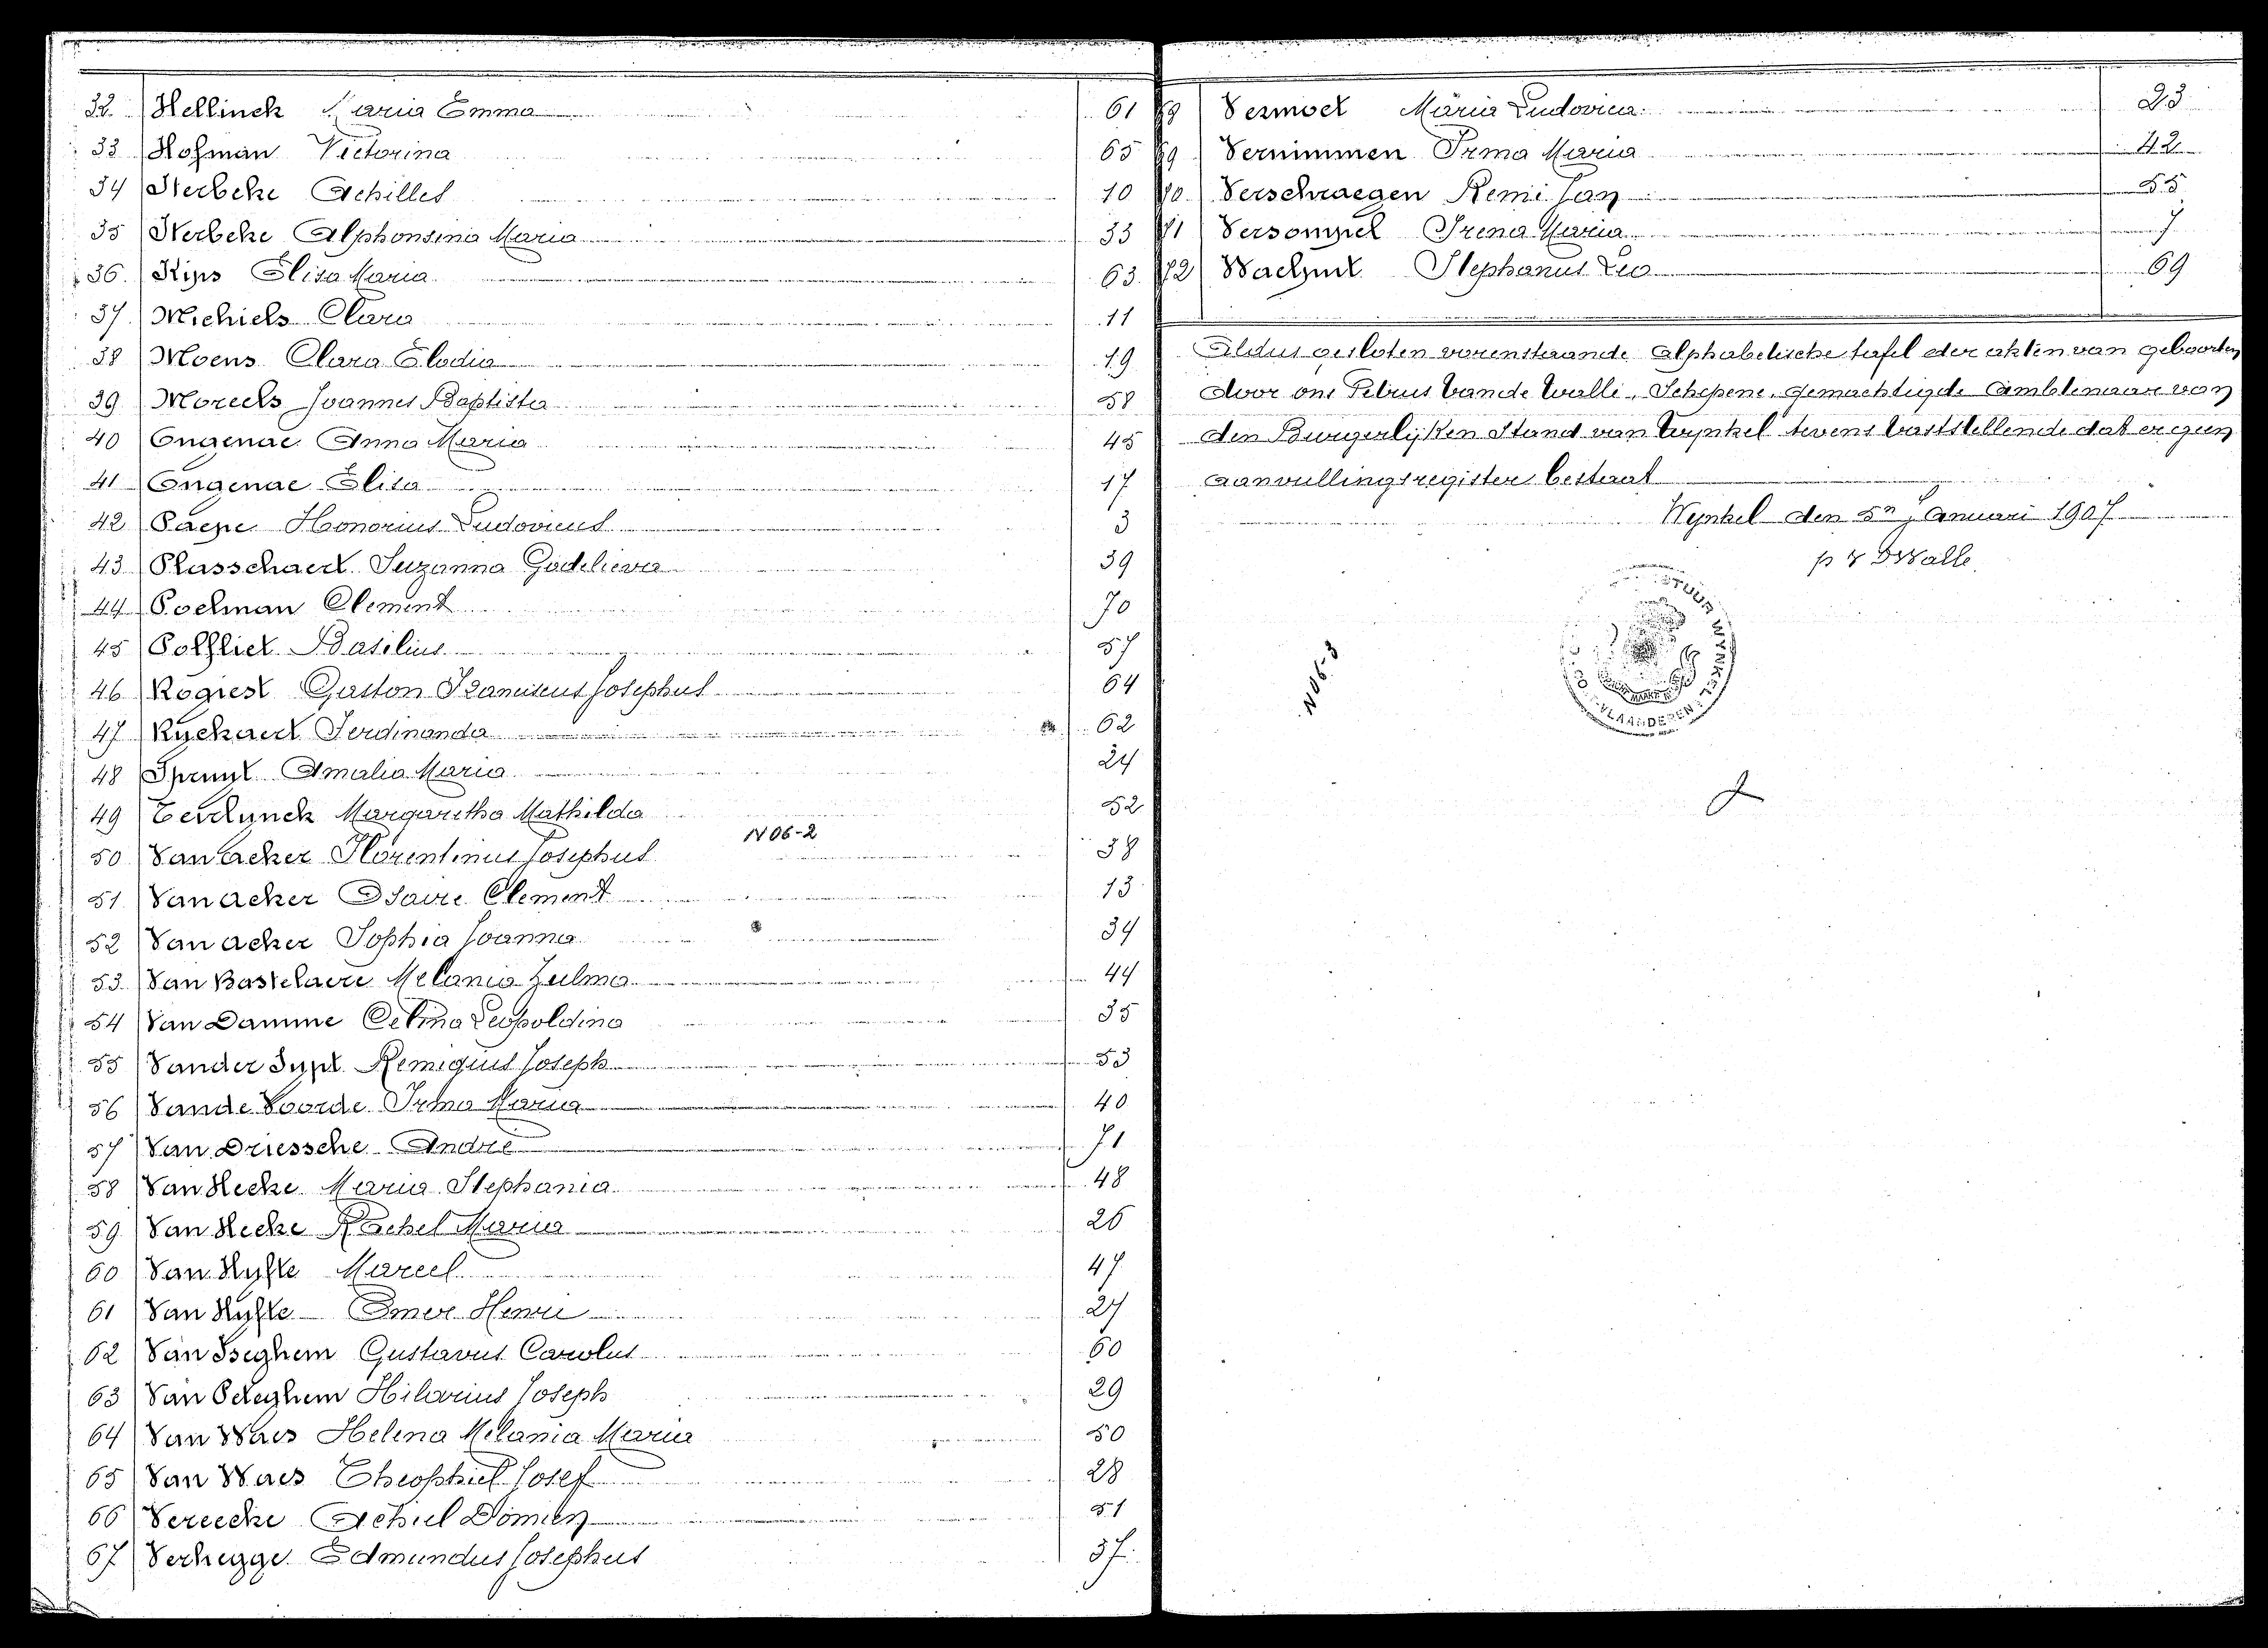 32 Hellinck Maria Emma 61
33 Hofman Victorina 65
34 Kerbeke Achilles 10
35 Kerbeke Alphonsina Maria 33
36 Kips Elisa Maria 63
37 Michiels Clara 11
38 Moens Clara Elodia 19
39 Moreels Joannes Baptista 58
40 Ongenae Anna Maria 45
41 Ongenae Elisa 17
42 Paepe Honorius Ludovicus 3
43 Plasschaert Suzanna Godelieva 39
44 Poelman Clement 70
45 Potvliet Basilius 57
46 Rogiest Gaston Franciscus Josephus 64
47 Ryckaert Ferdinanda 62
48 Spruyt Amalia Maria 24
49 Terlynck Margaretha Mathilda 52
N06-2
50 Van Acker Florentinus Josephus 38
51 Van Acker Clement 13
52 Van Acker Sophia Joanna 34
53 Van Bastelaere Melania Zulma 44
54 Van Damme Celina Leopoldina 35
55 Vander Remigius Joseph 53
56 Vande Voorde Irma Maria 40
57 Van Driessche André 71
58 Van Hecke Maria Stephania 48
59 Van Hecke Rachel Maria 26
60 Van Hyfte Marcel 47
61 Van Hyfte Omer Henri 27
62 Van Iseghem Gustavus Carolus 60
63 Van Peteghem Hilarius Joseph 29
64 Van Waes Helena Melania Maria 50
65 Van Waes Theophiel Josef 28
66 Vereecke Achiel Domien 51
67 Verhegge Edmundus Josephus 37
Vermoet Maria Ludovica 23
69 Vernimmen Irma Maria 42
70 Verschraegen Remi Jan 55
71 Versompel Irena Maria 7
72 Stephanus Leo 69
Aldus gesloten vorenstaande alphabetische tafel der akten van geboorten
door ons Petrus Vande Walle, Schepene, gemachtigde Ambtenaar van
den Burgerlijken Stand van Wynkel tevens vaststellende dat er geen
aanvullingsregister bestaat
Wynkel den 5n Januari 1907
p v DWalle
N06-3
VLAANDEREN